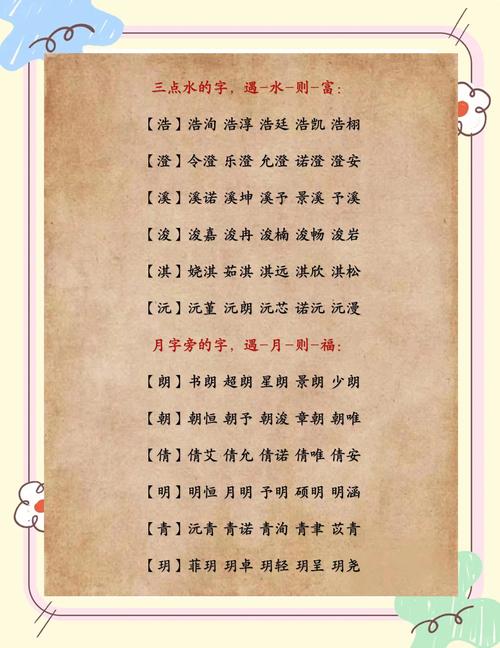 三点水的字，遇-水-则-富：
【浩】浩洵 浩淳 浩廷 浩凯 浩栩
【澄】令澄 乐澄 允澄 诺澄 澄安
【溪】溪诺 溪坤 溪予 景溪 予溪
【浚】浚嘉 浚冉 浚楠 浚畅 浚岩
【淇】娆淇 茹淇 淇远 淇欣 淇松
【沅】沅堇 沅朗 沅芯 诺沅 沅漫
月字旁的字，遇-月-则-福：
【朗】书朗 超朗 星朗 景朗 少朗
【朝】朝恒 朝予 朝浚 章朝 朝唯
【倩】倩艾 倩允 倩诺 倩唯 倩安
【明】明恒 月明 予明 硕明 明涵
【青】沅青 青诺 青洵 青聿 苡青
【玥】菲玥 玥卓 玥轻 玥呈 玥尧